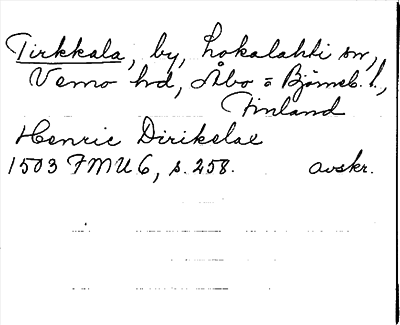 Tirkkala, by, Lokalahti sn,
Vemo hd, Åbo o Björneb. l.,
Finland
Henric Dirikslae
1503 FMU 6, s. 258. avskr.